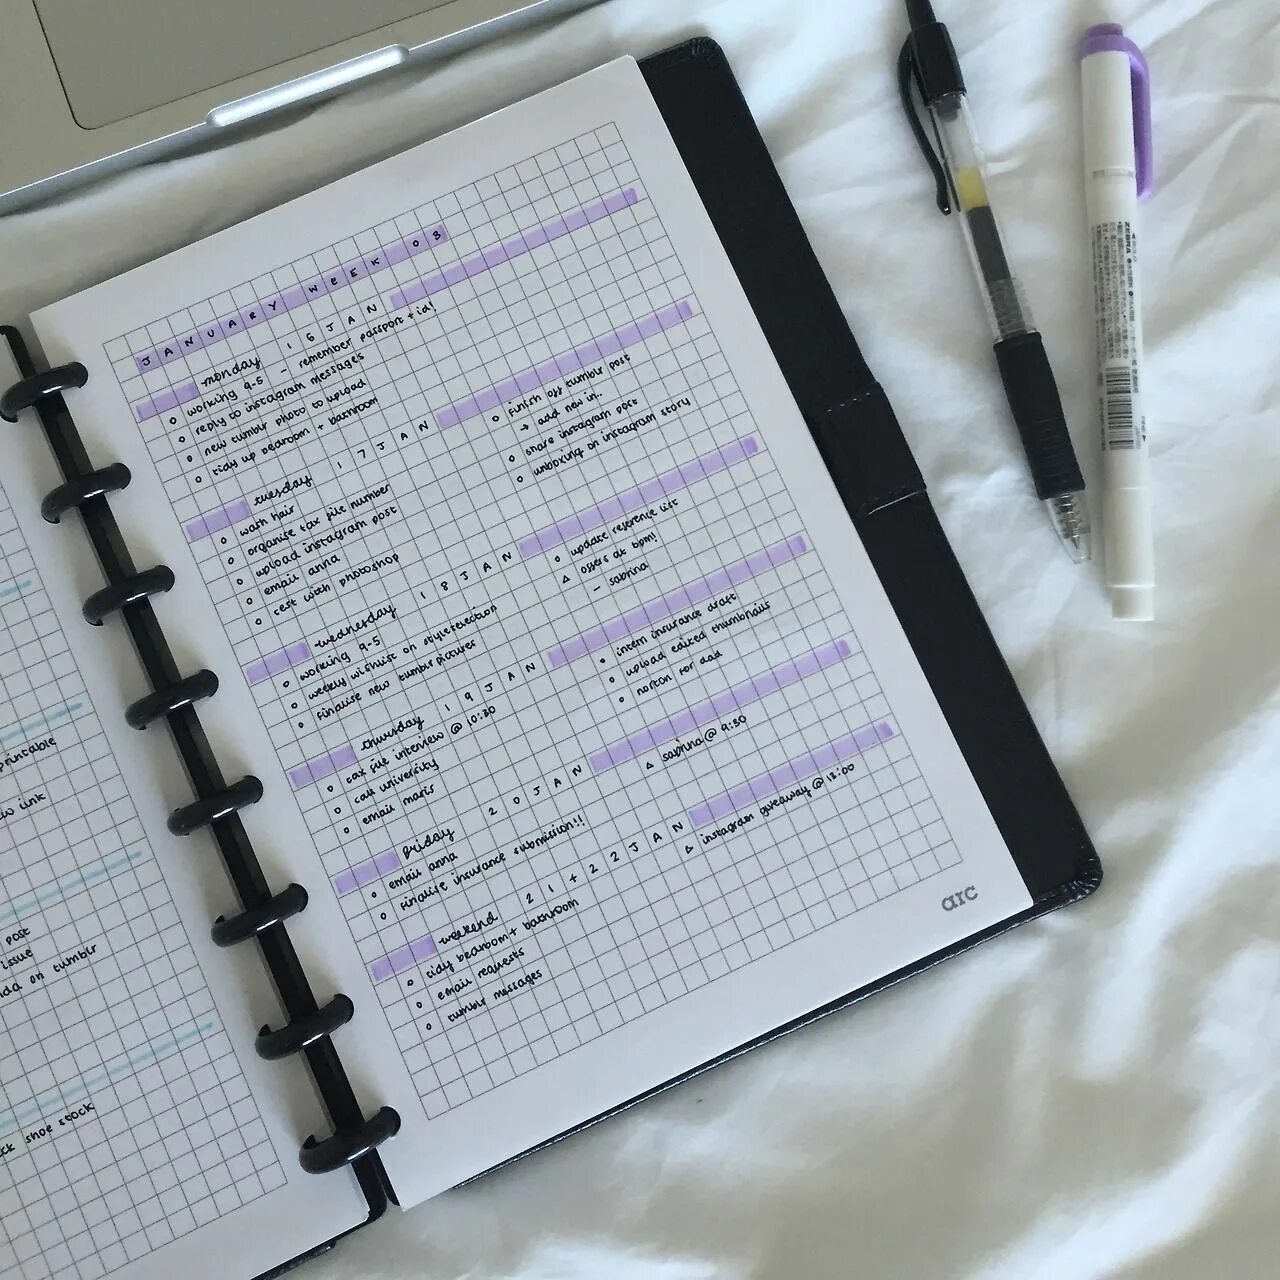 JANUARY WEEK 03
monday 16 JAN
working 9-5 - remember passport + id!
reply to instagram messages
new tumblr photo to upload
tidy up bedroom + bathroom
tuesday 17 JAN
wash hair
organise tax file number
upload instagram post
email anna
test with photoshop
finish off tumblr post
→ add new in..
share instagram post
unboxing on instagram story
wednesday 18 JAN
working 9-5
weekly wishlist on styletection
finalise new tumblr picture
update reference list
offers at 6pm!
- sabrina
thursday 19 JAN
tax file interview @ 10:30
call university
email maris
intern insurance draft
upload edited thumbnails
norton for dad
friday 20 JAN
email anna
finalise insurance submission!!
sabrina @ 9:30
weekend 21+22 JAN
tidy bedroom + bathroom
email requests
tumblr messages
instagram giveaway @ 18:00
arc
printable
link
post
issue
on tumblr
shoe stock
ZEBRA